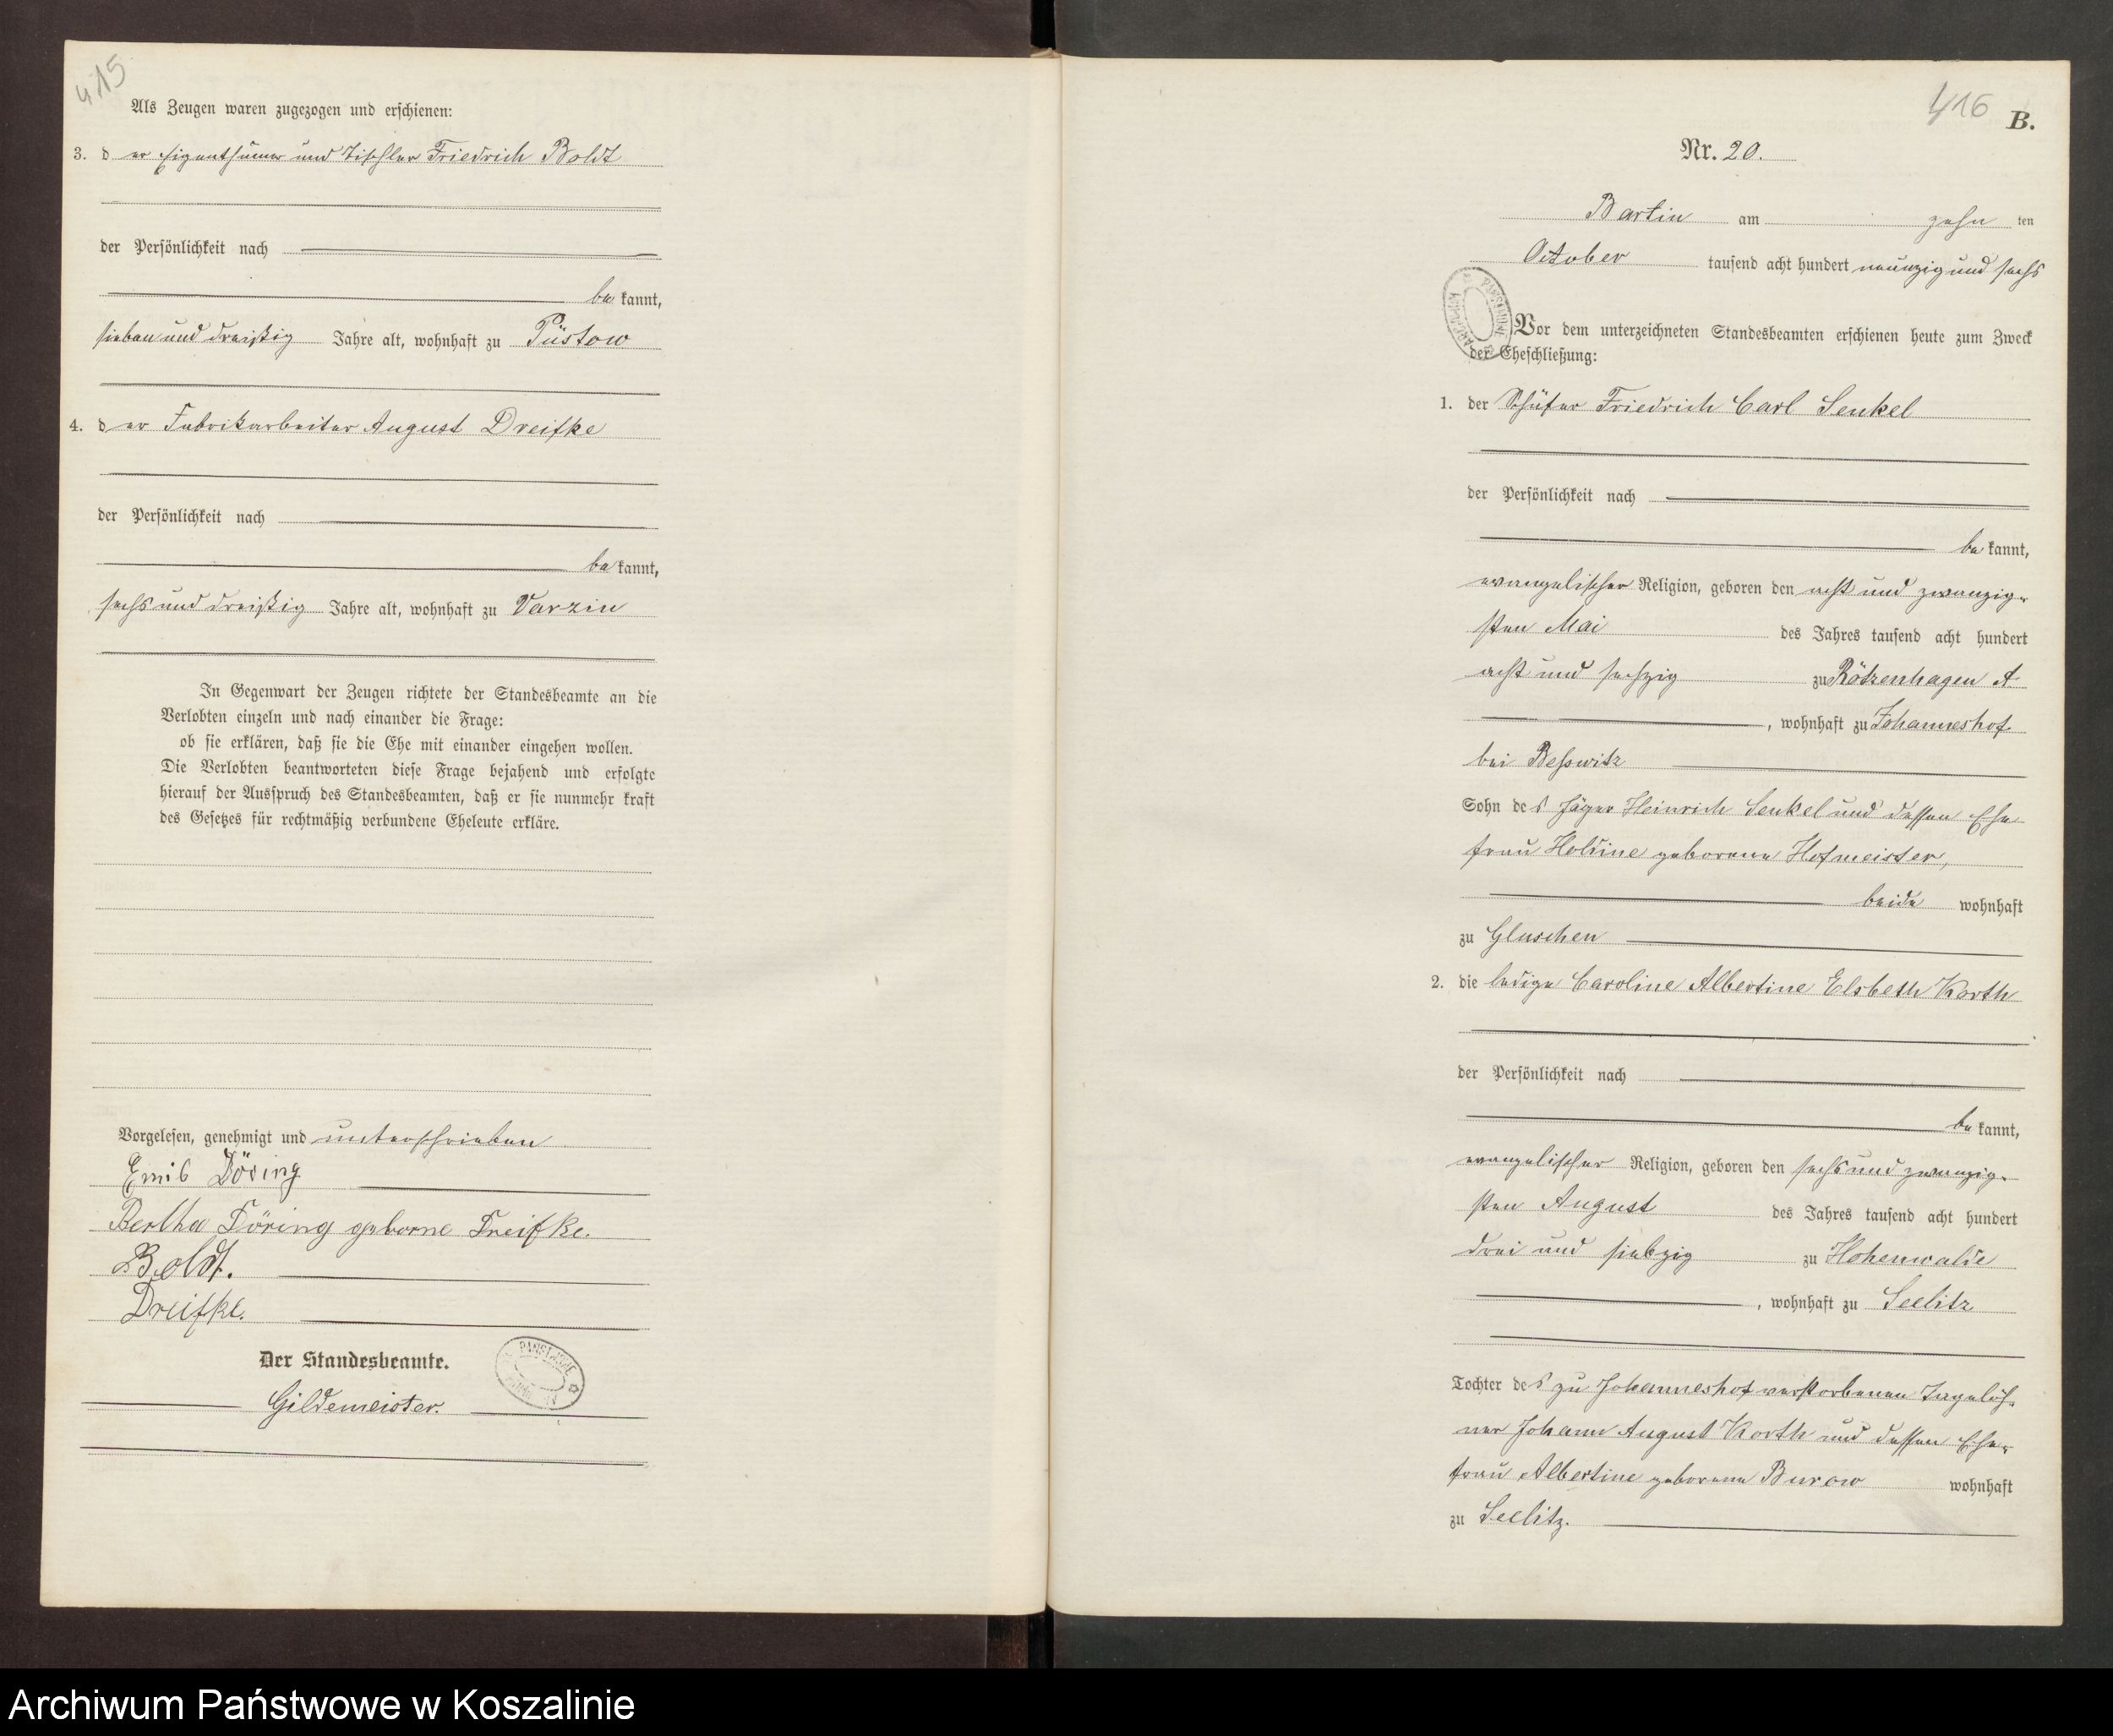 415
Als Zeugen waren zugezogen und erschienen:
3. der Eigenthümer und Tischler Friedrich Boldt
der Persönlichkeit nach
bekannt,
sieben und dreißig Jahre alt, wohnhaft zu Püstow
4. der Fabrikarbeiter August Dreifke
der Persönlichkeit nach
bekannt,
sechs und dreißig Jahre alt, wohnhaft zu Varzin
In Gegenwart der Zeugen richtete der Standesbeamte an die
Verlobten einzeln und nach einander die Frage:
ob sie erklären, daß sie die Ehe mit einander eingehen wollen.
Die Verlobten beantworteten diese Frage bejahend und erfolgte
hierauf der Ausspruch des Standesbeamten, daß er sie nunmehr kraft
des Gesetzes für rechtmäßig verbundene Eheleute erkläre.
Vorgelesen, genehmigt und unterschrieben
Emil Döring
Bertha Döring geborne Dreifke.
Boldt.
Dreifke.
Der Standesbeamte.
Gildemeister.
416
B.
Nr. 20.
Bartin am zehn ten
October tausend acht hundert neunzig und sechs
Vor dem unterzeichneten Standesbeamten erschienen heute zum Zweck
der Eheschließung:
1. der Schäfer Friedrich Carl Senkel
der Persönlichkeit nach
bekannt,
evangelischer Religion, geboren den acht und zwanzig-
sten Mai des Jahres tausend acht hundert
acht und sechzig zu Rötzenhagen A
, wohnhaft zu Johanneshof
bei Beßwitz
Sohn des Jäger Heinrich Senkel und dessen Ehe
frau Holdine geborene Hofmeister,
beide wohnhaft
zu Gluschen
2. die ledige Caroline Albertine Elsbeth Korth
der Persönlichkeit nach
bekannt,
evangelischer Religion, geboren den sechs und zwanzig-
sten August des Jahres tausend acht hundert
drei und siebzig zu Hohenwalde
, wohnhaft zu Seelitz
Tochter des zu Johanneshof verstorbenen Tagelöh-
ner Johann August Korth und dessen Ehe-
frau Albertine geborene Burow wohnhaft
zu Seelitz.
Archiwum Państwowe w Koszalinie